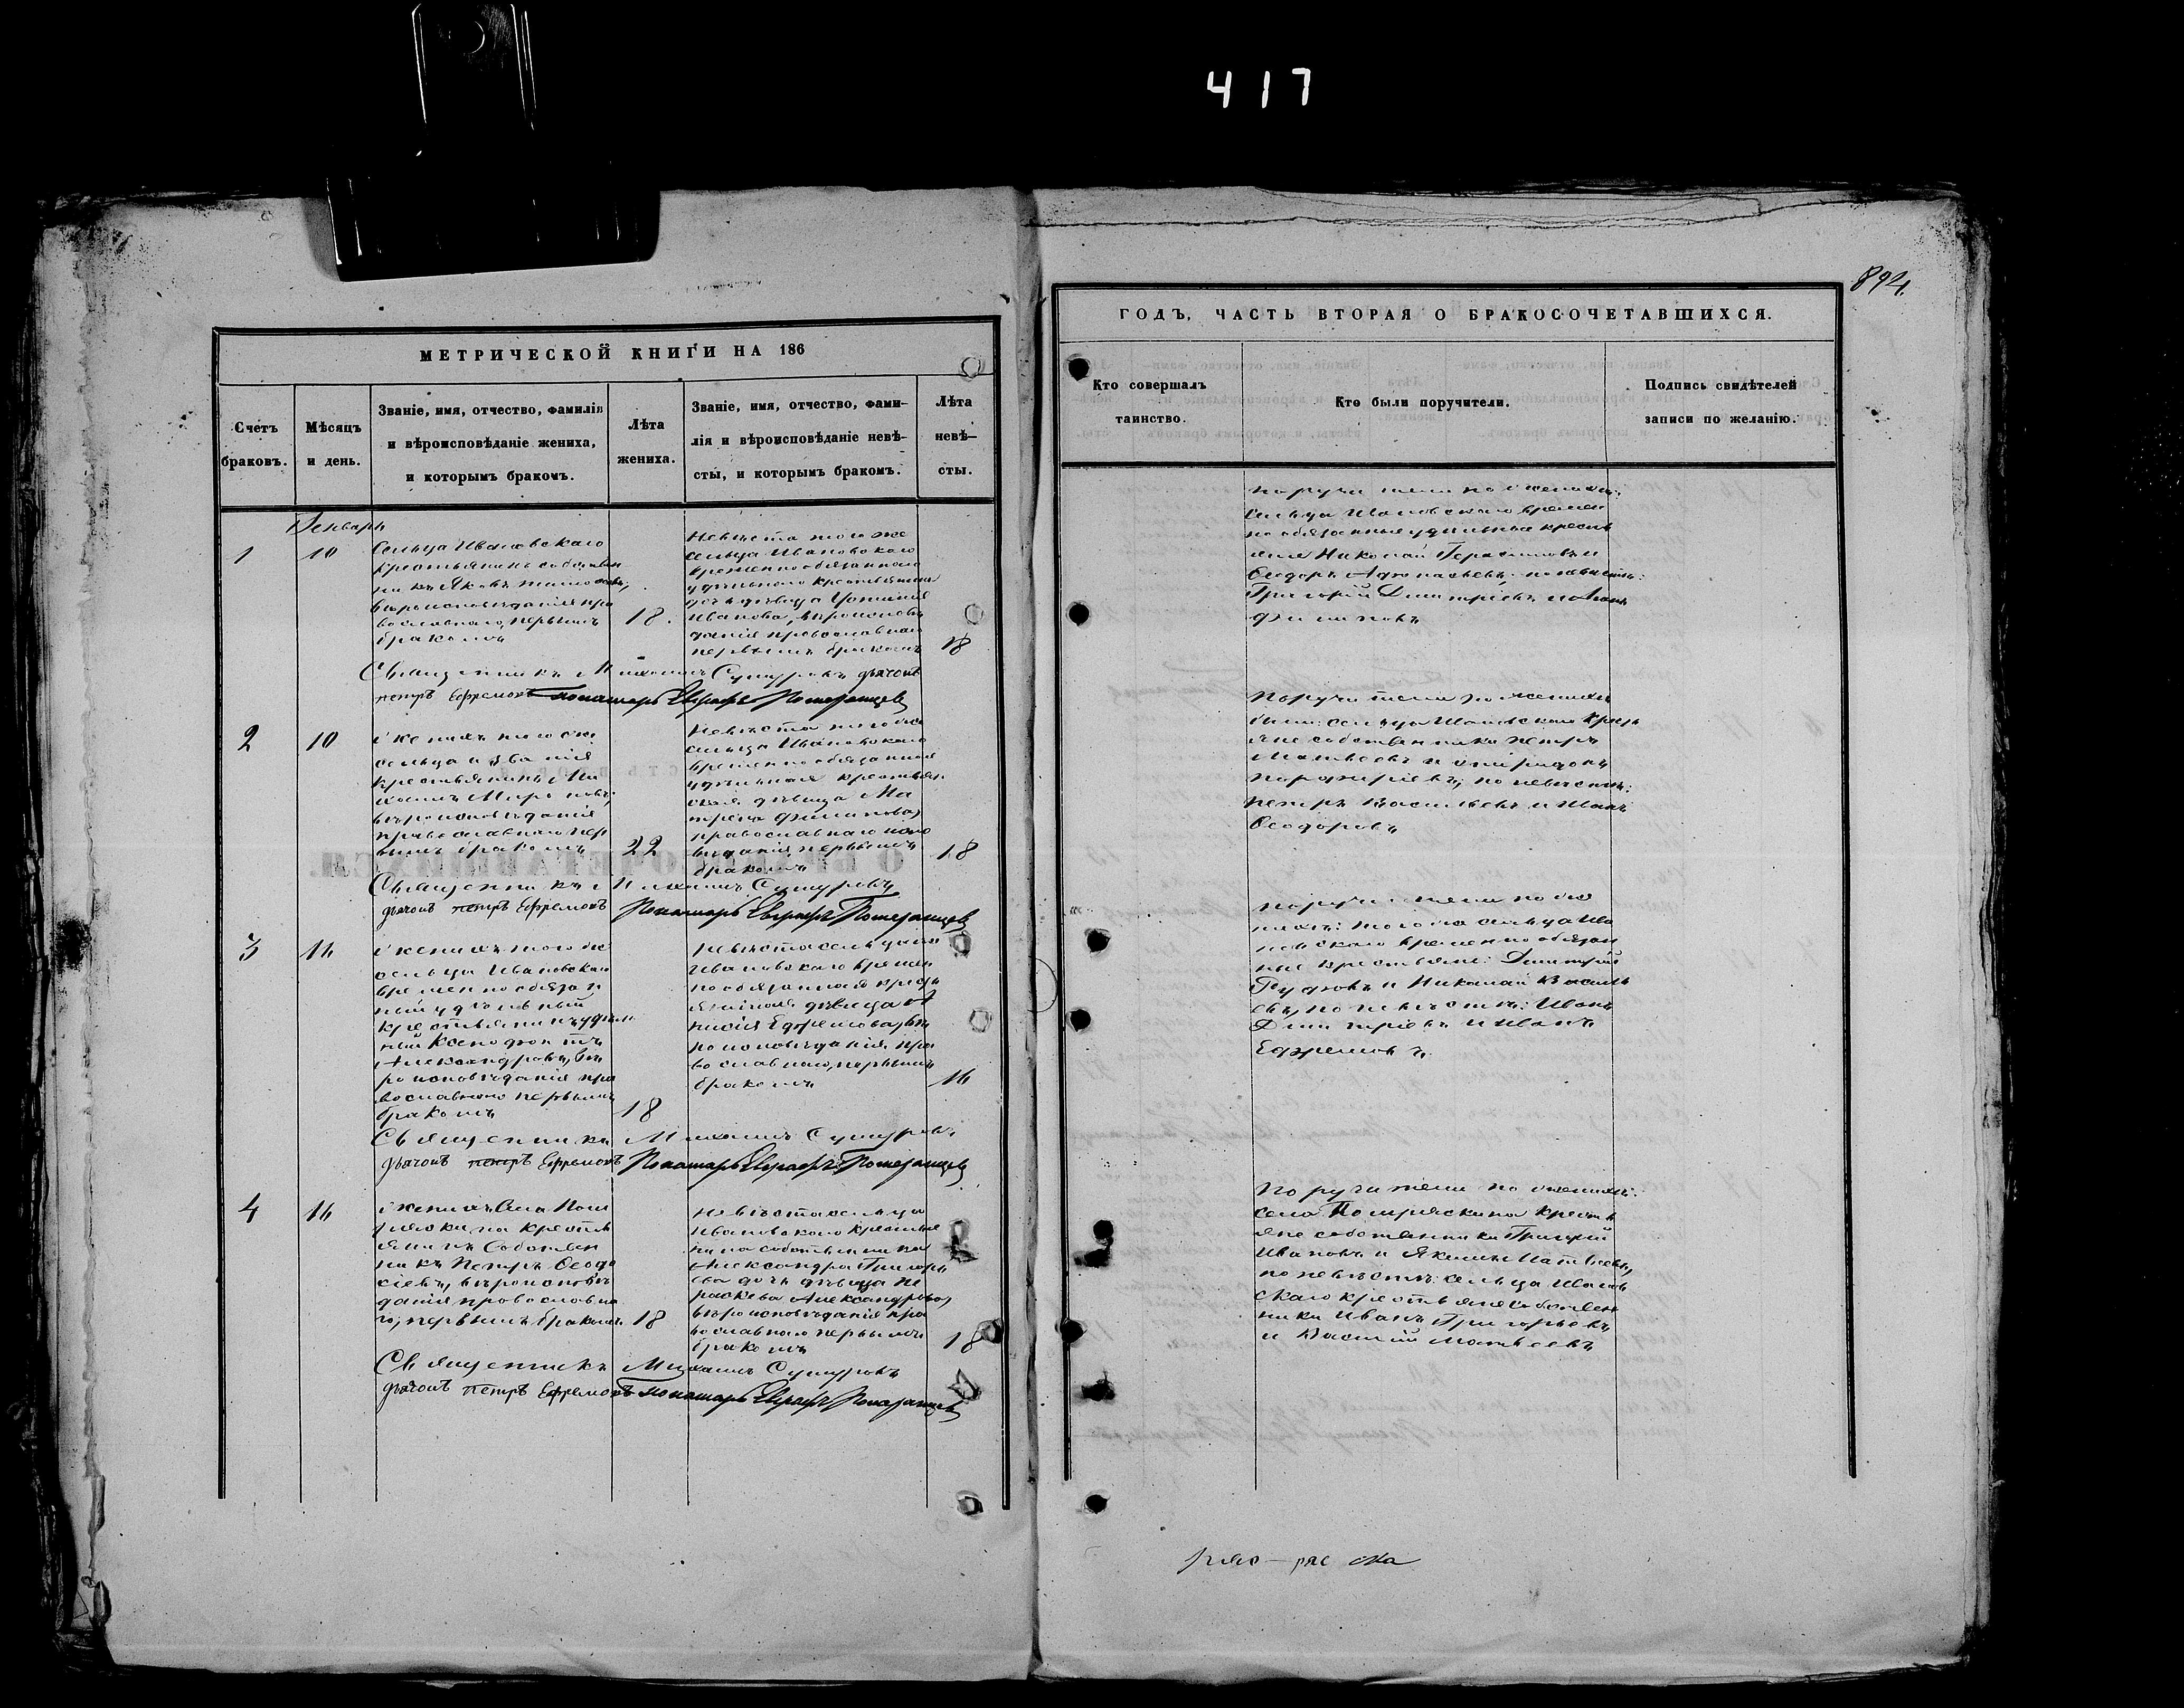 417
894.
МЕТРИЧЕСКОЙ КНИГИ НА 186
Счетъ
браковъ.
Мѣсяцъ
и день.
Званіе, имя, отчество, фамилія
и вѣроисповѣданіе жениха,
и которымъ бракомъ.
Лѣта
жениха.
Званіе, имя, отчество, фами-
лія и вѣроисповѣданіе невѣ-
сты, и которымъ бракомъ.
Лѣта
невѣ-
сты.
Январь
1
10
Сельца Ивановскаго
крестьянинъ собствен
никъ Яковъ
вѣроисповѣданія пра
вославнаго, первымъ
бракомъ
18.
Невѣста того же
сельца Ивановскаго
временнообязаннаго
удѣльнаго крестьянина
дочь дѣвица
Иванова, вѣроисповѣ
данія православнаго
первымъ бракомъ
18
Священникъ Михаилъ дьячокъ
петръ Ефремовъ пономарь Евграфъ Померанцевъ
2
10
женихъ того же
сельца и званія
крестьянинъ Ми
хаилъ Мироновъ,
вѣроисповѣданія
православнаго пер
вымъ бракомъ
22
Невѣста того же
сельца Ивановскаго
временнообязанная
удѣльная крестьян
ская дѣвица Ма
трена Филипова,
православнаго испо
вѣданія, первымъ
бракомъ
18
Священникъ Михаилъ
дьячокъ петръ Ефремовъ Пономарь Евграфъ Померанцевъ
3
16
женихъ того же
сельца Ивановскаго
временнообязан
ный удѣльный
крестьянинъ
Ксенофонтъ
Александровъ, вѣ
роисповѣданія пра
вославнаго первымъ
бракомъ
18
невѣста сельца
Ивановскаго времен
нообязанная кресть
янская дѣвица А
нисія Ефремова, вѣ
роисповѣданія пра
вославнаго, первымъ
бракомъ
16
Священникъ Михаилъ
дьячокъ петръ Ефремовъ Пономарь Евграфъ Померанцевъ
4
16
женихъ Села Пот
ряскина кресть
янинъ Собствен
никъ Петръ Ѳеодо
сіевъ, вѣроисповѣ
данія православна
го, первымъ бракомъ
18
невѣста сельца
Ивановскаго крестья
нина собственника
Александра Григорь
ева дочь дѣвица Па
раскева Александрова,
вѣроисповѣданія пра
вославнаго первымъ
бракомъ
18
Священникъ Михаилъ
дьячокъ петръ Ефремовъ пономарь Евграфъ Померанцевъ
ГОДЪ, ЧАСТЬ ВТОРАЯ О БРАКОСОЧЕТАВШИХСЯ.
Кто совершалъ
таинство.
Кто были поручители.
Подпись свидѣтелей
записи по желанію.
поручители по женихѣ:
Сельца Ивановскаго времен
нообязанные удѣльные кресть
яне Николай Герасимовъ и
Ѳеодоръ по невѣстѣ:
Григорій Димитріевъ и Иванъ
Филиповъ
Поручители по женихѣ
были: сельца Ивановскаго кресть
яне собственники петръ
Матвеевъ и спиридонъ
порфиріевъ; по невѣстѣ:
петръ Васильевъ и Иванъ
Ѳеодоровъ
поручители по же
нихѣ: того же сельца Ива
новскаго временнообязан
ные крестьяне: Димитрій
и Николай Василь
евъ, по невѣстѣ: Иванъ
Димитріевъ и Иванъ
Ефремовъ.
поручители по женихѣ:
села Потряскина кресть
яне собственники Григорій
Ивановъ и Якимъ Матвеевъ,
по невѣстѣ: сельца Иванов
скаго крестьяне Собствен
ники Иванъ Григорьевъ
и Василій Матвеевъ